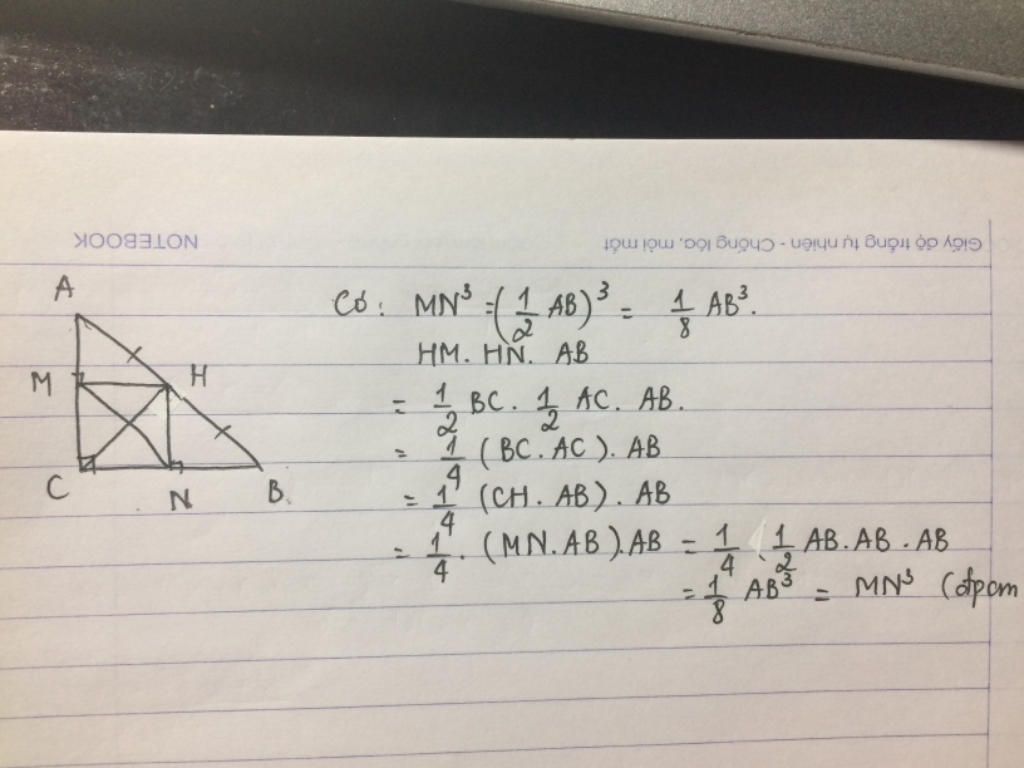 NOTEBOOK
Giấy độ trắng tự nhiên - Chống lóa, mỏi mắt
A
M
H
C
N
B
Có: MN³ = (1/2 AB)³ = 1/8 AB³.
HM. HN. AB
= 1/2 BC. 1/2 AC. AB.
= 1/4 (BC.AC). AB
= 1/4 (CH. AB). AB
= 1/4. (MN.AB).AB = 1/4 . 1/2 AB.AB.AB
= 1/8 AB³ = MN³ (đpcm